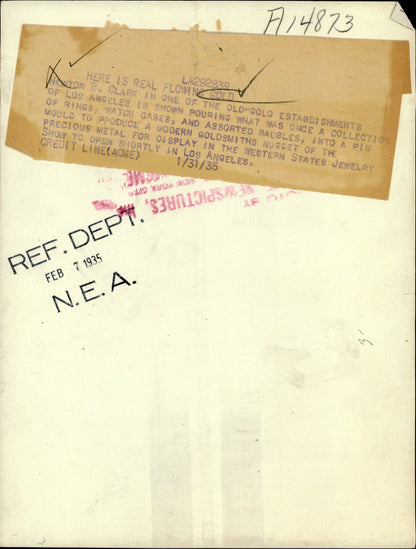 A14873
LA292839
HERE IS REAL FLOWING GOLD
NEWTON B. CLARK IN ONE OF THE OLD-GOLD ESTABDISHMENTS
OF LOS ANGELES IS SHOWN POURING WHAT WAS ONCE A COLLECTION
OF RINGS, WATCH CASES, AND ASSORTED BAUBLES, INTO A PIG
MOULD TO PRODUCE A MODERN GOLDSMITHS NUGGET OF THE
PRECIOUS METAL FOR DISPLAY IN THE WESTERN STATES JEWELRY
SHOW TO OPEN SHORTLY IN LOS ANGELES.
CREDIT LINE(ACME) 1/31/35
NEW YORK CITY
NEWSPICTURES,
BY
REF. DEPT.
FEB 7 1935
N.E.A.